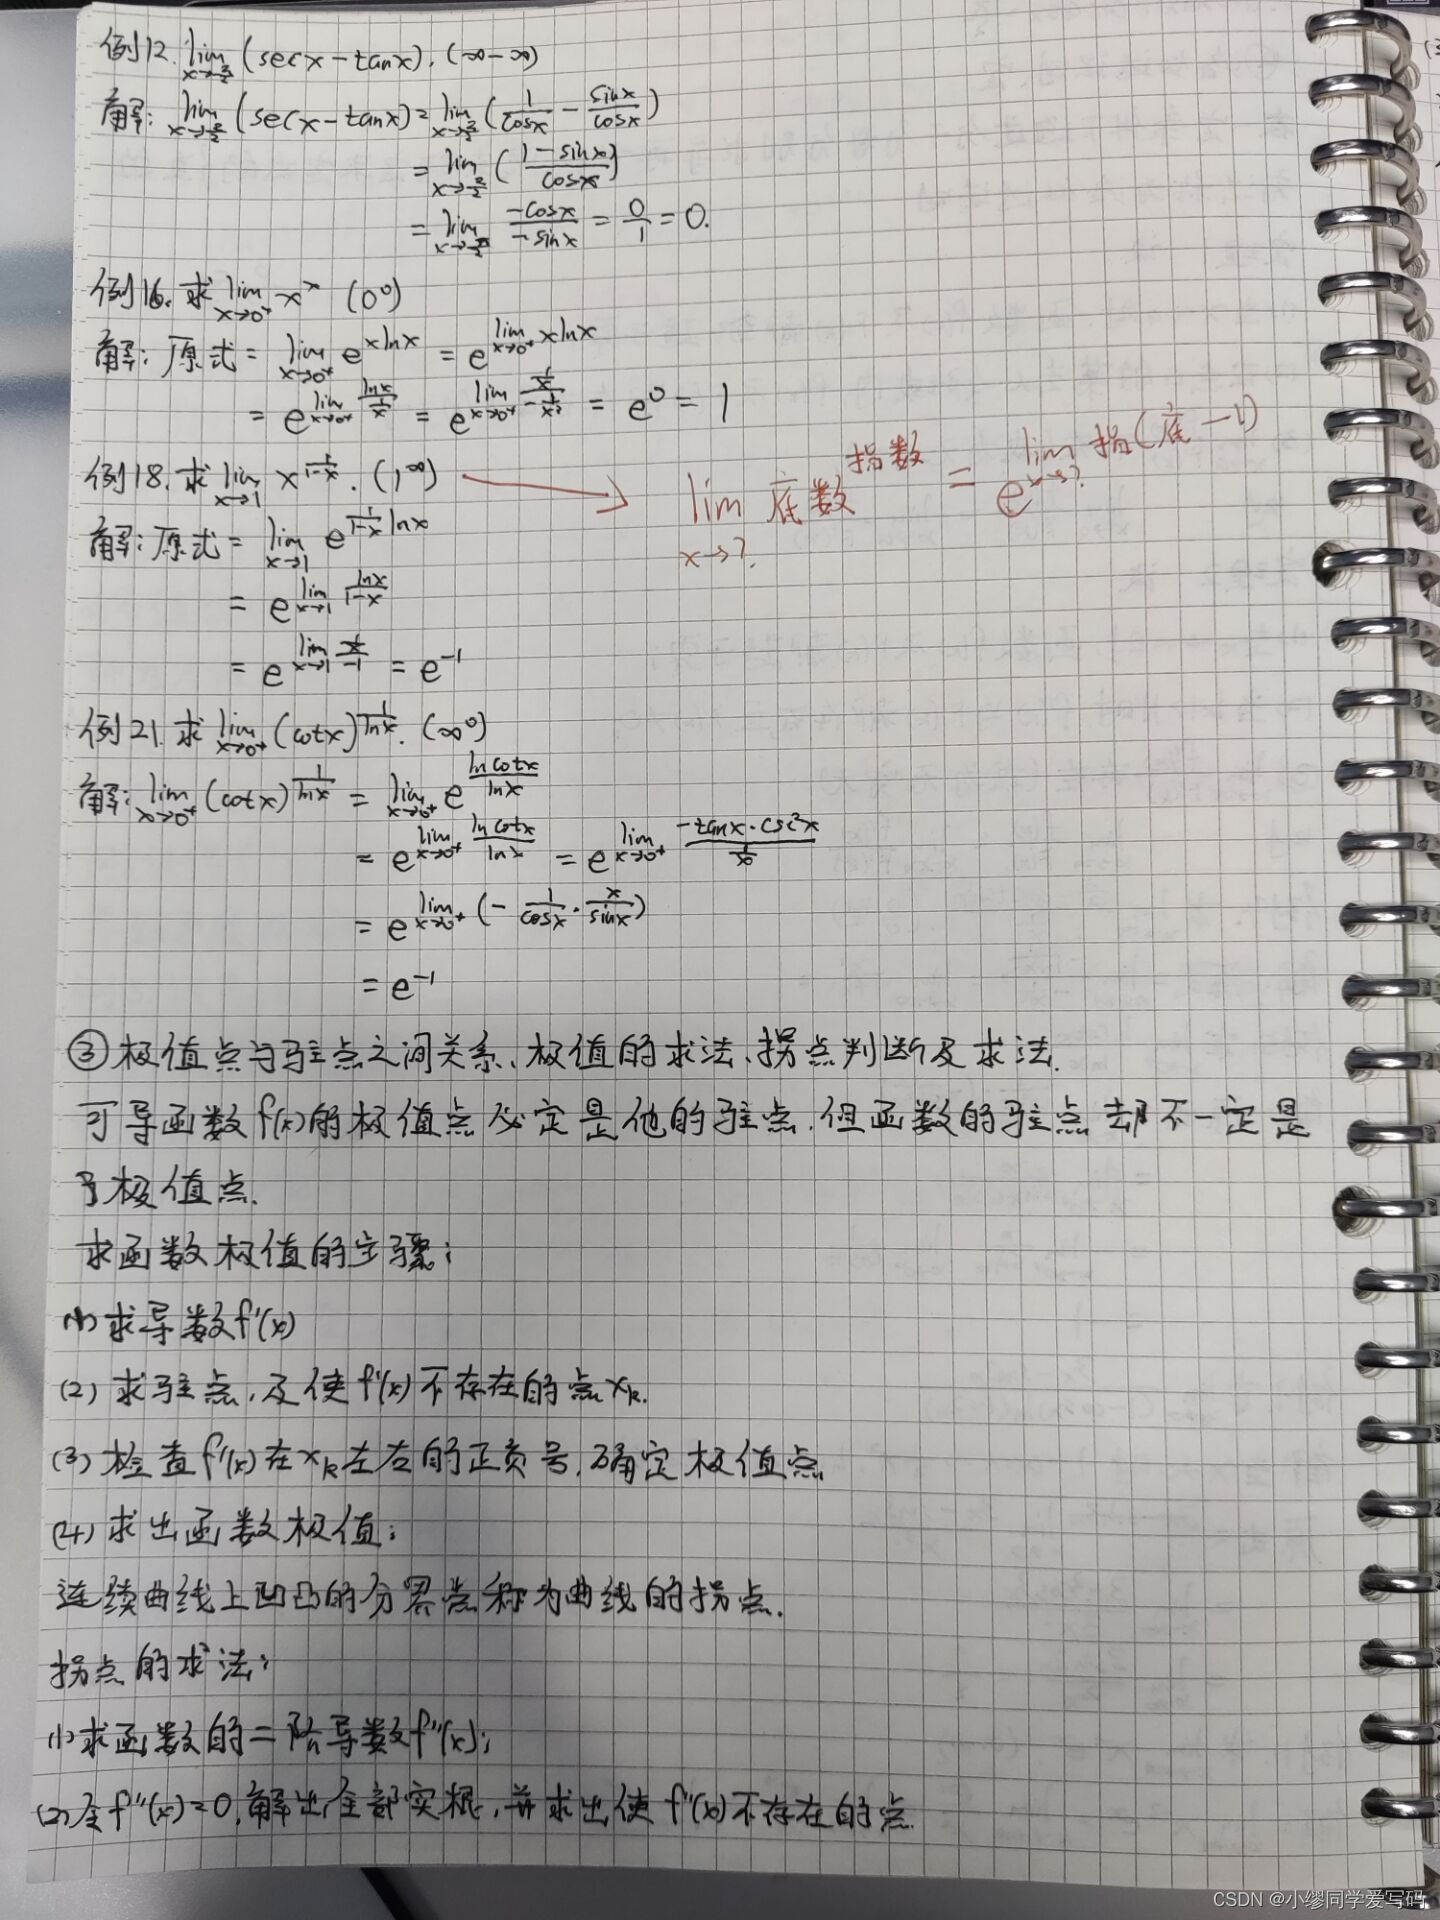 例12. lim x→π/2 (secx-tanx). (∞-∞)
解: lim x→π/2 (secx-tanx) = lim x→π/2 (1/cosx - sinx/cosx)
= lim x→π/2 (1-sinx/cosx)
= lim x→π/2 -cosx/-sinx = 0/1 = 0.
例16. 求 lim x→0⁺ xˣ (0⁰)
解: 原式 = lim x→0⁺ e^(xlnx) = e^(lim x→0⁺ xlnx)
= e^(lim x→0⁺ lnx/(1/x)) = e^(lim x→0⁺ (1/x)/(-1/x²)) = e⁰ = 1
例18. 求 lim x→1 x^(1/(1-x)). (1^∞)
lim x→? 底数^指数 = e^(lim x→? 指(底-1))
解: 原式 = lim x→1 e^(1/(1-x) lnx)
= e^(lim x→1 lnx/(1-x))
= e^(lim x→1 (1/x)/-1) = e⁻¹
例21. 求 lim x→0⁺ (cotx)^(1/lnx). (∞⁰)
解: lim x→0⁺ (cotx)^(1/lnx) = lim x→0⁺ e^(lncotx/lnx)
= e^(lim x→0⁺ lncotx/lnx) = e^(lim x→0⁺ (-tanx·csc²x)/(1/x))
= e^(lim x→0⁺ (-1/cosx · x/sinx))
= e⁻¹
③极值点与驻点之间关系、极值的求法、拐点判断及求法.
可导函数f(x)的极值点必定是他的驻点.但函数的驻点却不一定是
极值点.
求函数极值的步骤:
(1) 求导数f'(x)
(2) 求驻点,及使f'(x)不存在的点xₖ.
(3) 检查f'(x)在xₖ左右的正负号,确定极值点
(4) 求出函数极值;
连续曲线上凹凸的分界点称为曲线的拐点.
拐点的求法:
(1)求函数的二阶导数f''(x);
(2)令f''(x)=0,解出全部实根,并求出使f''(x)不存在的点
CSDN @小缪同学爱写码